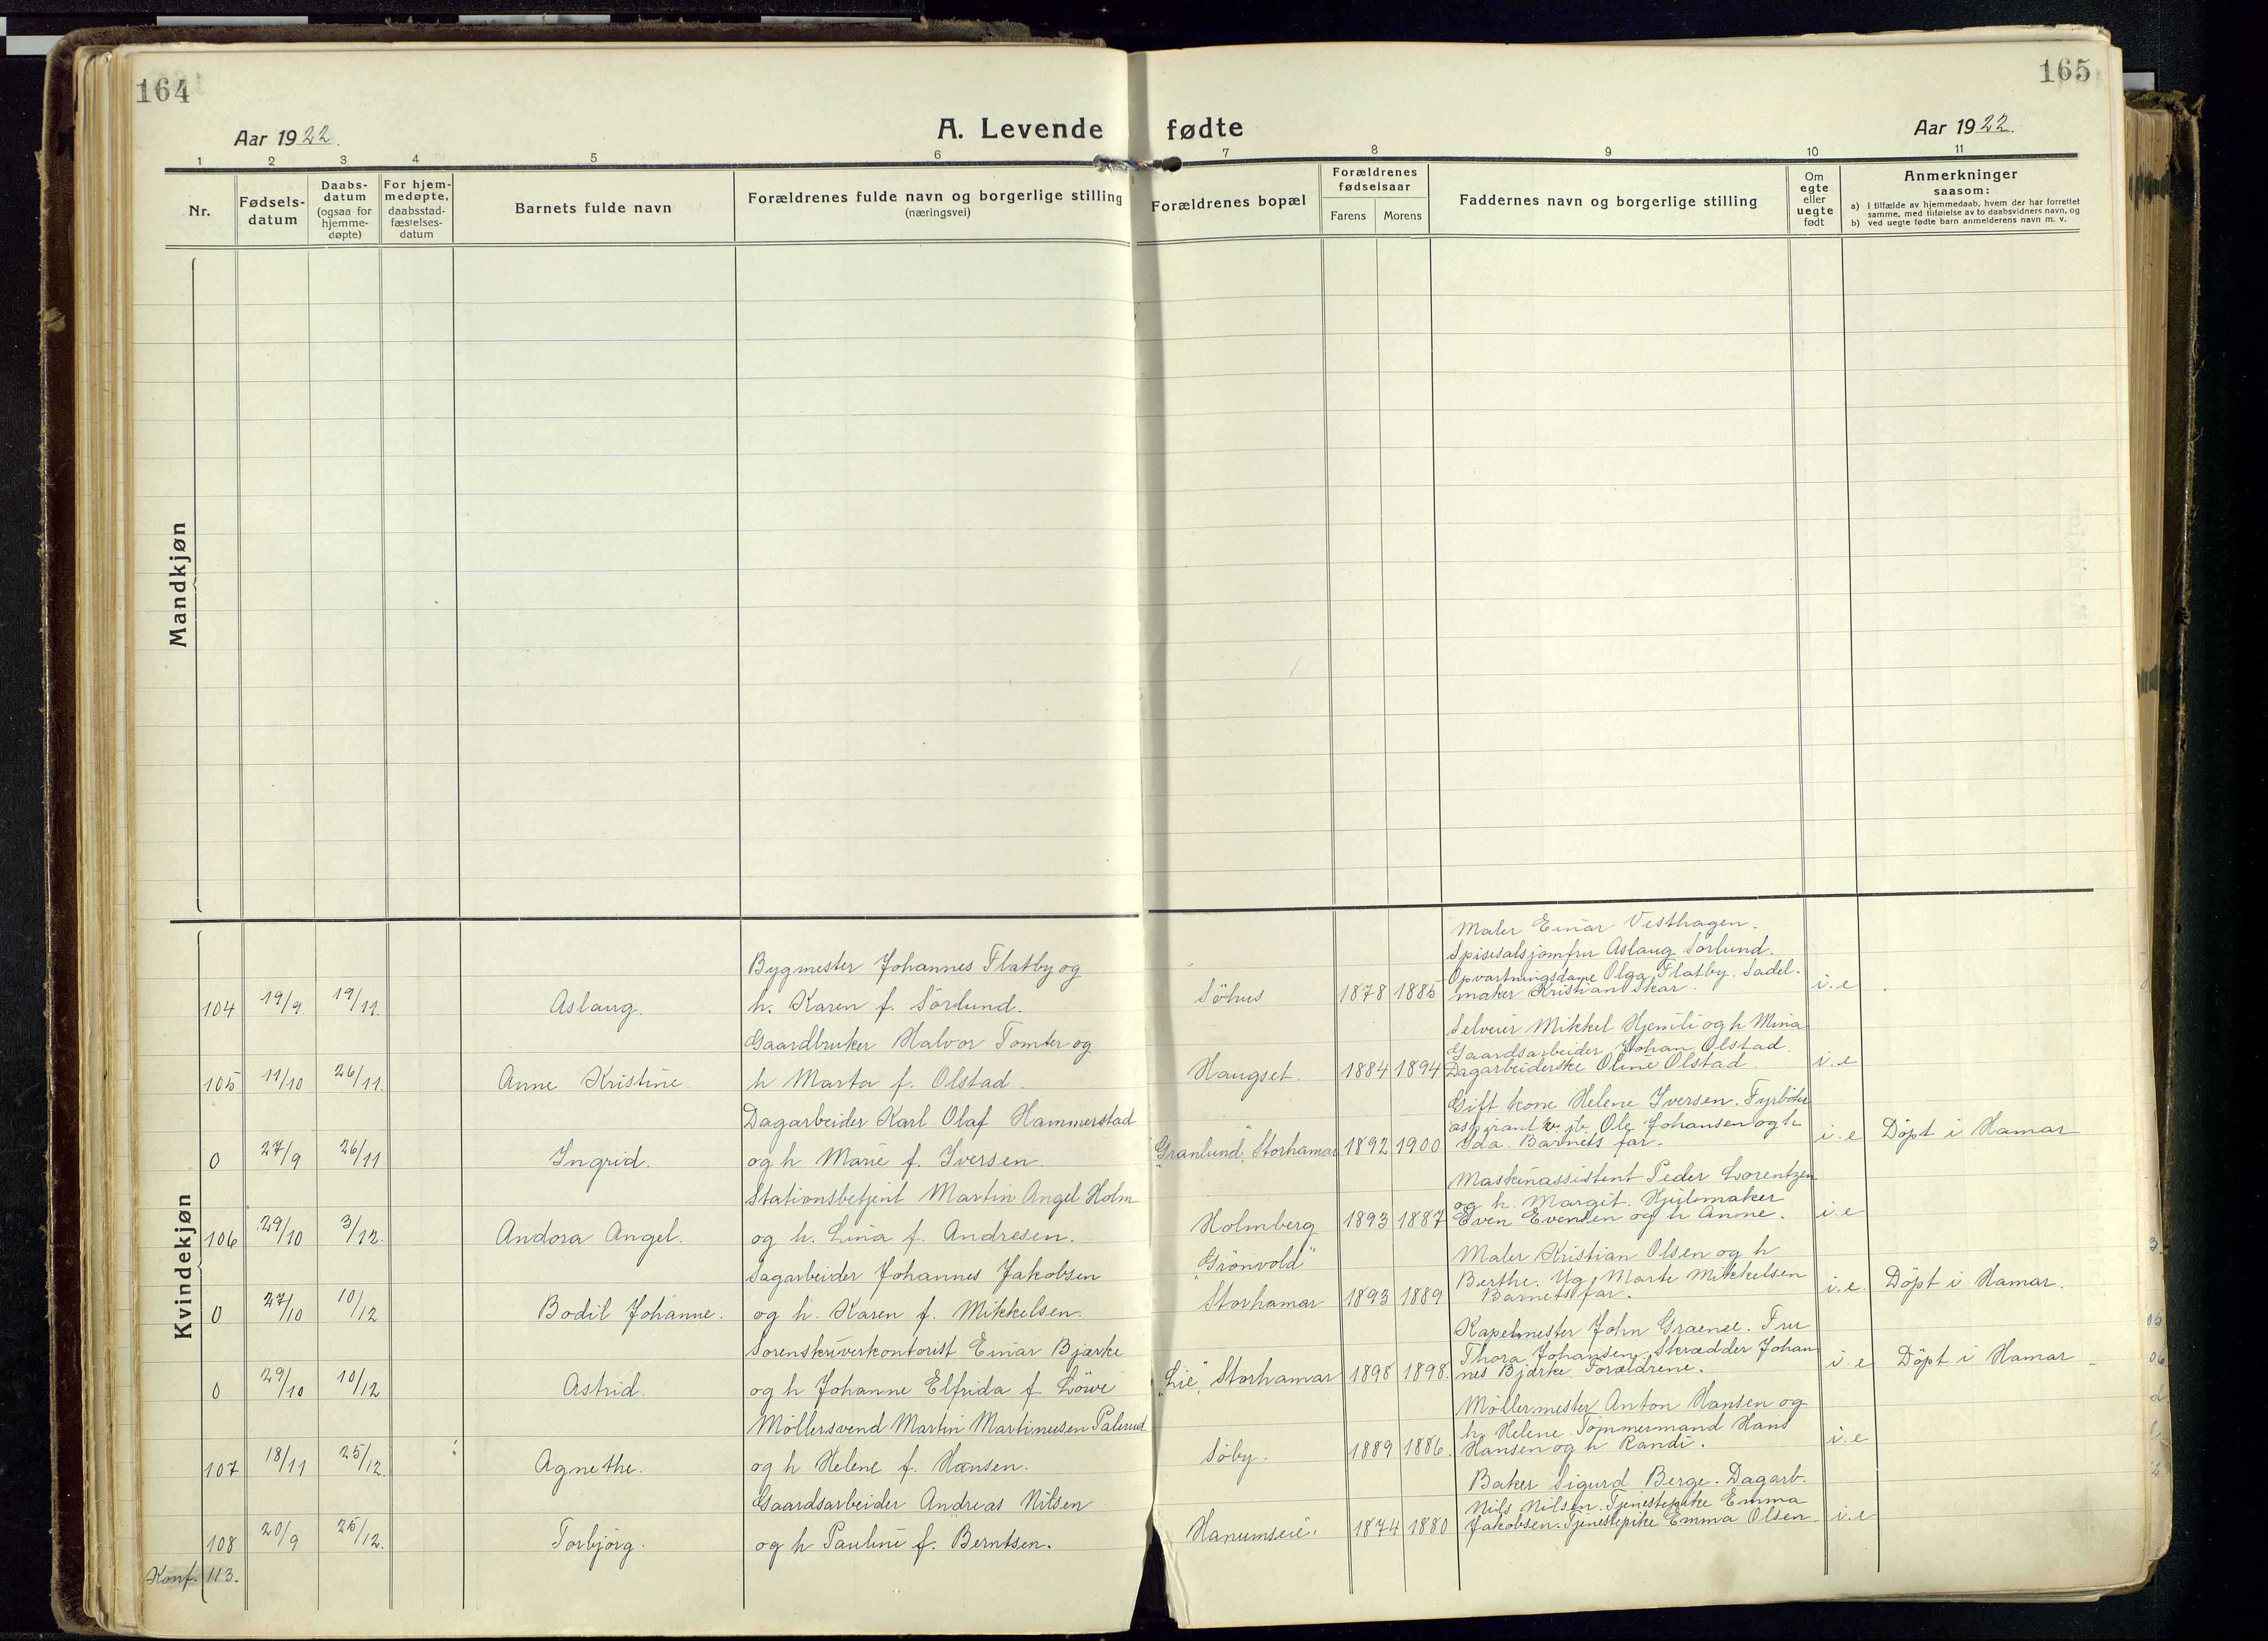 164
165
Aar 1922.
A. Levende fødte
Aar 1922.
1 2 3 4 5 6 7 8 9 10 11
Nr.
Fødsels-
datum
Daabs-
datum
(ogsaa for
hjemme-
døpte)
For hjem-
medøpte,
daabsstad-
fæstelses-
datum
Barnets fulde navn
Forældrenes fulde navn og borgerlige stilling
(næringsvei)
Forældrenes bopæl
Forældrenes
fødselsaar
Farens Morens
Faddernes navn og borgerlige stilling
Om
egte
eller
uegte
født
Anmerkninger
saasom:
a) I tilfælde av hjemmedaab, hvem der har forrettet
samme, med tilføielse av to daabsvidners navn, og
b) ved uegte fødte barn anmelderens navn m. v.
Mandkjøn
Kvindekjøn
104 19/9. 19/11. Aslaug.
Bygmester Johannes Flatby og
h. Karen f. Sörlund.
Söhus 1878 1885
Maler Einar Vesthagen.
Spisesalsjomfru Aslaug Sörlund.
Opvartningsdame Olga Flatby. Sadel-
maker Kristian Skar.
i. e
105 11/10 26/11. Anne Kristine.
Gaardbruker Halvor Tomter og
h Marta f. Olstad.
Haugset. 1884 1894
Selveier Mikkel Hjemli og h Mina
Gaardsarbeider Johan Olstad.
Dagarbeiderske Oline Olstad.
i. e
0 27/9 26/11 Ingrid.
Dagarbeider Karl Olaf Hammerstad
og h Marie f. Iversen
"Granlund", Storhamar 1892 1900
Gift kone Helene Iversen. Fyrböter
aspirant v. jb. Ole Johansen og h
Ida. Barnets far.
i. e Döpt i Hamar
106 29/10 3/12. Andora Angel.
Stationsbetjent Martin Angel Holm
og h. Lina f. Andresen.
Holmberg 1893 1887
Maskinassistent Peder Lorentzen
og h. Margit. Hjulmaker
Even Evensen og h Anne.
i. e
0 27/10 10/12 Bodil Johanne.
Sagarbeider Johannes Jakobsen
og h. Karen f. Mikkelsen.
"Grönvold"
Storhamar 1893 1889
Maler Kristian Olsen og h
Berthe. Ug. Marte Mikkelsen
Barnets far.
i. e. Döpt i Hamar.
0 29/10 10/12 Astrid.
Sorenskriverkontorist Einar Bjærke
og h Johanne Elfrida f. Löwe
"Lie", Storhamar 1898 1898.
Kapelmester John Graenee. Fru
Thora Johansen. Skrædder Johan
nes Bjærke. Forældrene.
i. e Döpt i Hamar
107 18/11 25/12. Agnethe.
Möllersvend Martin Martinusen Palerud
og h Helene f. Hansen.
Söby. 1889 1886.
Möllermester Anton Hansen og
h. Helene. Tömmermand Hans
Hansen og h Randi.
i. e
108 20/9 25/12. Torbjörg.
Gaardsarbeider Andreas Nilsen
og h Pauline f. Berntsen.
Hanumseie. 1874 1880
Baker Sigurd Berge. Dagarb.
Nils Nilsen. Tjenestepike Emma
Jakobsen. Tjenestepike Emma Olsen.
i. e
Konf. 113.